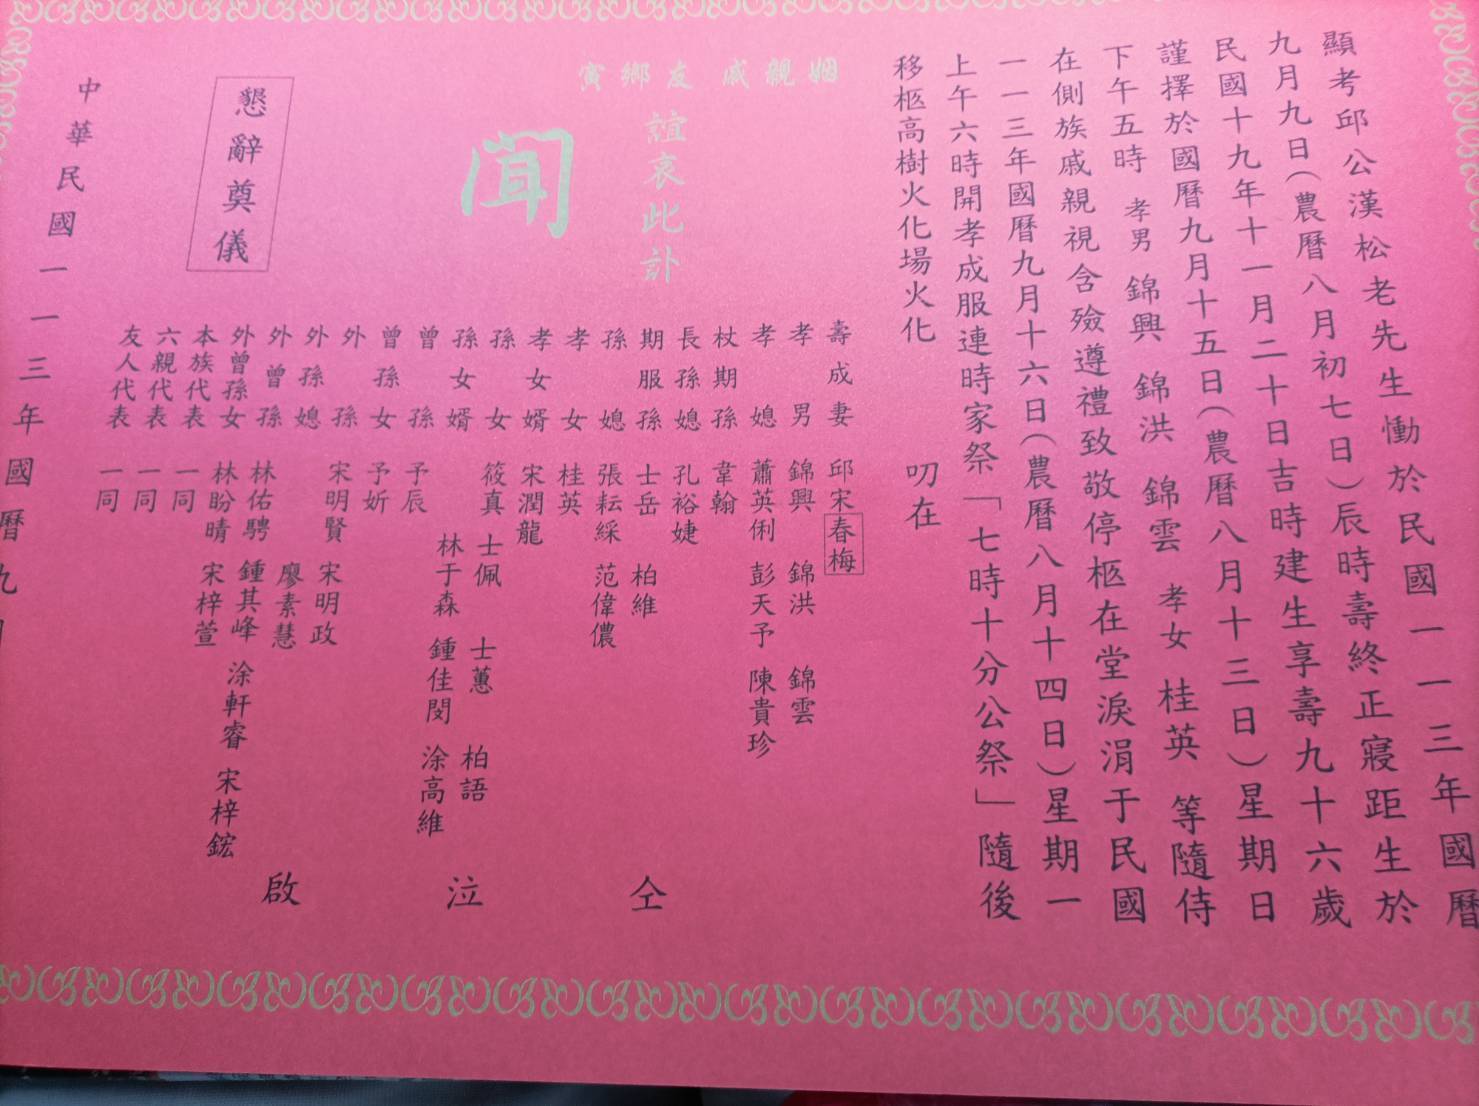 顯考邱公漢松老先生慟於民國一一三年國曆
九月九日(農曆八月初七日)辰時壽終正寢距生於
民國十九年十一月二十日吉時建生享壽九十六歲
謹擇於國曆九月十五日(農曆八月十三日)星期日
下午五時 孝男 錦興 錦洪 錦雲 孝女 桂英 等隨侍
在側族戚親視含殮遵禮致敬停柩在堂淚涓于民國
一一三年國曆九月十六日(農曆八月十四日)星期一
上午六時開孝成服連時家祭「七時十分公祭」隨後
移柩高樹火化場火化
叨在
姻親戚友鄉寅
誼哀此訃
聞
壽成妻 邱宋春梅
孝男 錦興 錦洪 錦雲
孝媳 蕭英俐 彭天予 陳貴珍
杖期孫 韋翰
長孫媳 孔裕婕
期服孫 士岳 柏維
孫媳 張耘綵 范偉儂
孝女 桂英
孝女婿 宋潤龍
孫女 筱真 士佩 士蕙 柏語
孫女婿 林于森 鍾佳閔 涂高維
曾孫 予辰
曾孫女 予妡
外孫 宋明賢 宋明政
外孫媳 廖素慧
外曾孫 林佑騁 鍾其峰 涂軒睿
外曾孫女 林盼晴 宋梓萱 宋梓鋐
本族代表 一同
六親代表 一同
友人代表 一同
仝
泣
啟
懇辭奠儀
中華民國一一三年國曆九月